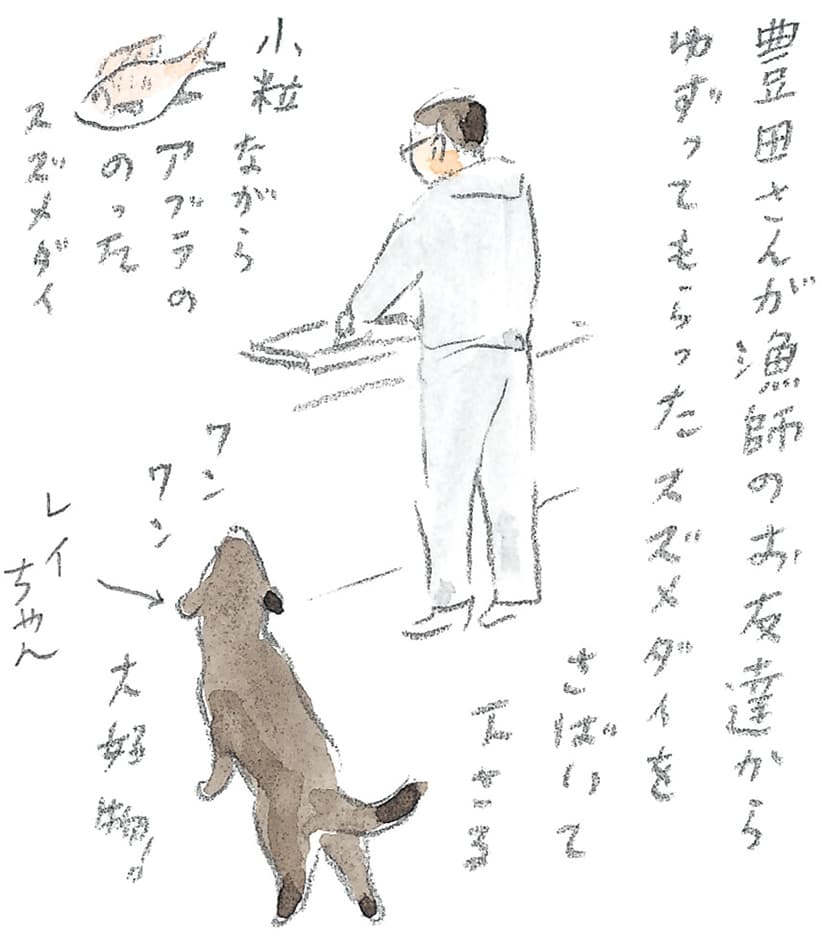 豊田さんが漁師のお友達から
ゆずってもらったスズメダイを
さばいて
下さる
小粒ながら
アブラの
のった
スズメダイ
ワン
ワン
レイ
ちゃん
大好物♪